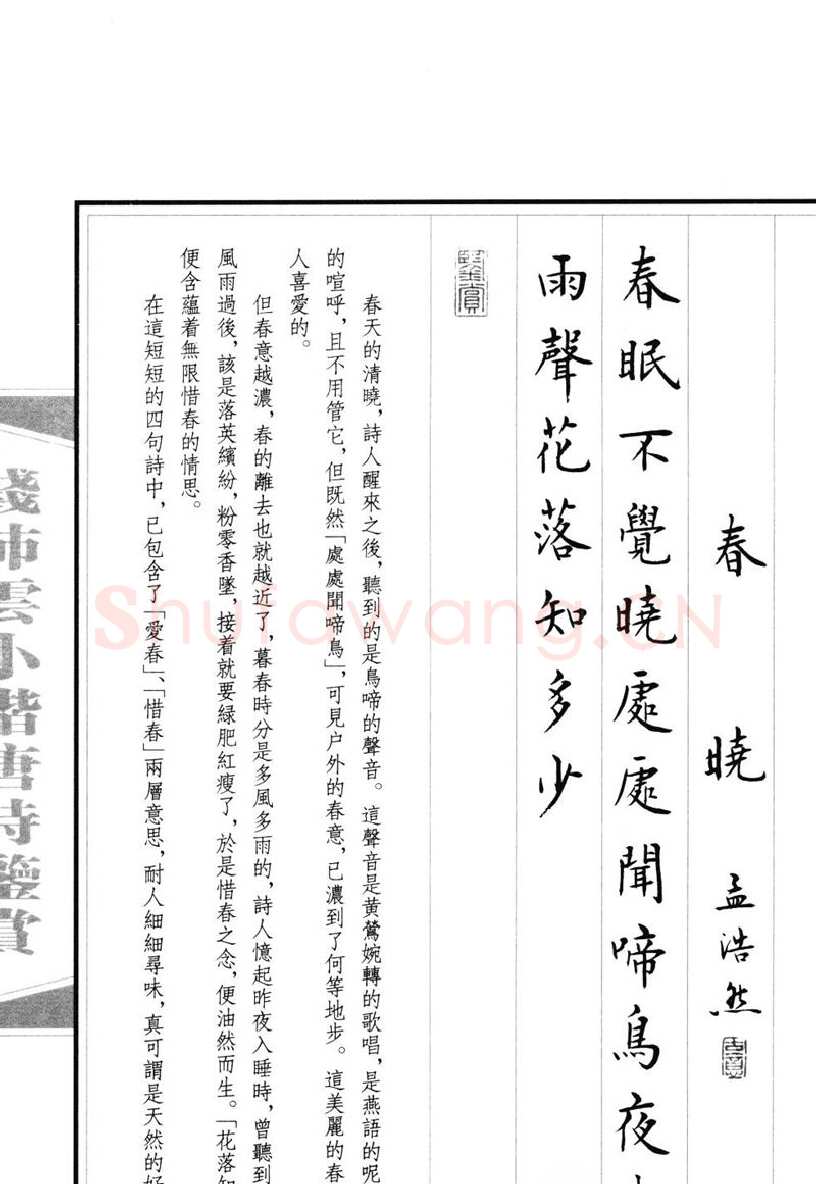 春曉 孟浩然
春眠不覺曉處處聞啼鳥夜
雨聲花落知多少
鑒賞
春天的清曉，詩人醒來之後，聽到的是鳥啼的聲音。這聲音是黃鶯婉轉的歌唱，是燕語的呢
的喧呼，且不用管它，但既然「處處聞啼鳥」，可見户外的春意，已濃到了何等地步。這美麗的春
人喜愛的。
但春意越濃，春的離去也就越近了，暮春時分是多風多雨的，詩人憶起昨夜入睡時，曾聽到
風雨過後，該是落英繽紛，粉零香墜，接着就要緑肥紅瘦了，於是惜春之念，便油然而生。「花落知
便含蘊着無限惜春的情思。
在這短短的四句詩中，已包含了「愛春」、「惜春」兩層意思，耐人細細尋味，真可謂是天然的好
錢沛雲小楷唐詩鑒賞
Shufawang.CN